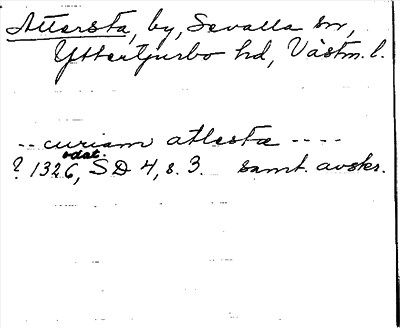 Attersta, by, Sevalla sn,
Yttertjurbo hd, Västm. l.
-- curiam atlestæ ----
odat.
? 1326, SD 4, s. 3. samt. avskr.